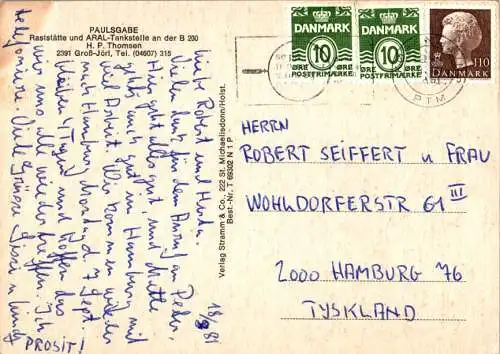 PAULSGABE
Raststätte und ARAL-Tankstelle an der B 200
H. P. Thomsen
2391 Groß-Jörl, Tel. (04607) 315
18/8 81
Liebe Robert und Herta.
Vielen Dank für den Anruf an Peder.
Hier geht alles gut, und Mette
geht auch gut in Hamburg mit
viel Arbeit. Wir kommen wieder
nach Hamburg Montag d. 7 Sept.
bleiben 4 Tage und hoffen das
wir uns alle wieder treffen. Ich
telefoniere. Viele Grüsse
PROSIT!
Verlag Stramm & Co., 222 St. Michaelisdonn/Holst.
Best.-Nr. T 69302 N 1 P
DANMARK
10
ØRE ØRE
POSTFRIMÆRKE
DANMARK
10
ØRE ØRE
POSTFRIMÆRKE
110
DANMARK
PTM
HERRN
ROBERT SEIFFERT u FRAU
WOHLDORFERSTR 61 III
2000 HAMBURG 76
TYSKLAND